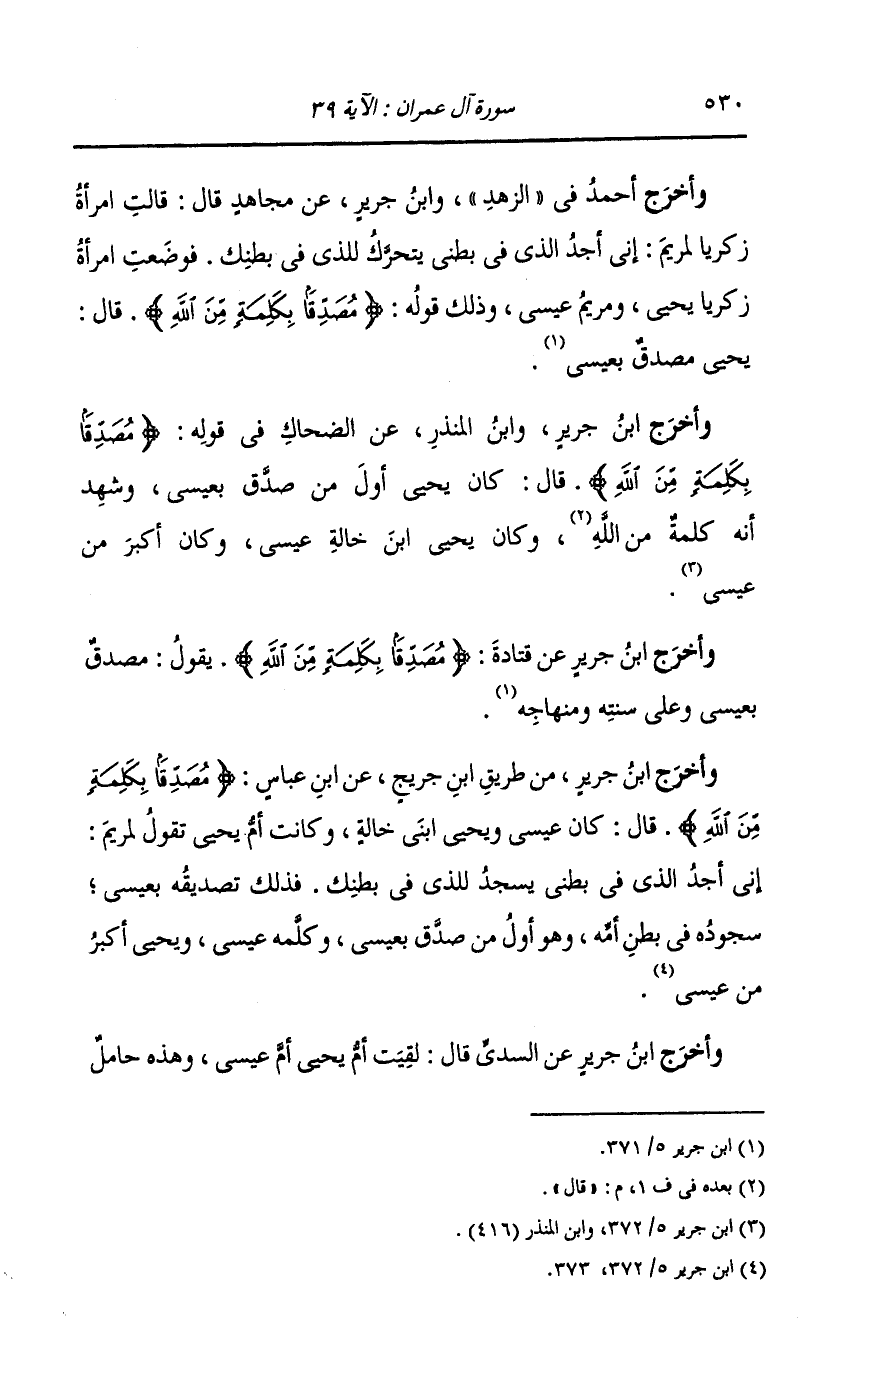 ٥٣٠ سورة آل عمران : الآية ٣٩
وأخرَج أحمدُ فى « الزهدِ » ، وابنُ جريرٍ ، عن مجاهدٍ قال : قالتِ امرأةُ
زكريا لمريمَ : إنى أجدُ الذى فى بطنى يتحرَّكُ للذى فى بطنِك . فوضَعتِ امرأةُ
زكريا يحيى ، ومريمُ عيسى ، وذلك قولُه : ﴿ مُصَدِّقًا بِكَلِمَةٍ مِّنَ ٱللَّهِ ﴾ . قال :
يحيى مصدقٌ بعيسى(١) .
وأخرَج ابنُ جريرٍ ، وابنُ المنذرِ ، عن الضحاكِ فى قولِه : ﴿ مُصَدِّقًا
بِكَلِمَةٍ مِّنَ ٱللَّهِ ﴾ . قال : كان يحيى أولَ من صدَّق بعيسى ، وشهِد
أنه كلمةٌ من اللَّهِ(٢) ، وكان يحيى ابنَ خالةِ عيسى ، وكان أكبرَ من
عيسى(٣) .
وأخرَج ابنُ جريرٍ عن قتادةَ : ﴿ مُصَدِّقًا بِكَلِمَةٍ مِّنَ ٱللَّهِ ﴾ . يقولُ : مصدقٌ
بعيسى وعلى سنتِه ومنهاجِه(١) .
وأخرَج ابنُ جريرٍ ، من طريقِ ابنِ جريجٍ ، عن ابنِ عباسٍ : ﴿ مُصَدِّقًا بِكَلِمَةٍ
مِّنَ ٱللَّهِ ﴾ . قال : كان عيسى ويحيى ابنَى خالةٍ ، وكانت أمُّ يحيى تقولُ لمريمَ :
إنى أجدُ الذى فى بطنى يسجدُ للذى فى بطنِك . فذلك تصديقُه بعيسى ؛
سجودُه فى بطنِ أمِّه ، وهو أولُ من صدَّق بعيسى ، وكلَّمه عيسى ، ويحيى أكبرُ
من عيسى(٤) .
وأخرَج ابنُ جريرٍ عن السدىِّ قال : لقِيَت أمُّ يحيى أمَّ عيسى ، وهذه حاملٌ
(١) ابن جرير ٥/ ٣٧١.
(٢) بعده فى ف ١، م : « قال » .
(٣) ابن جرير ٥/ ٣٧٢، وابن المنذر (٤١٦) .
(٤) ابن جرير ٥/ ٣٧٢، ٣٧٣.